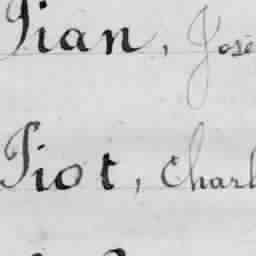 Pian, José
Piot, Charl